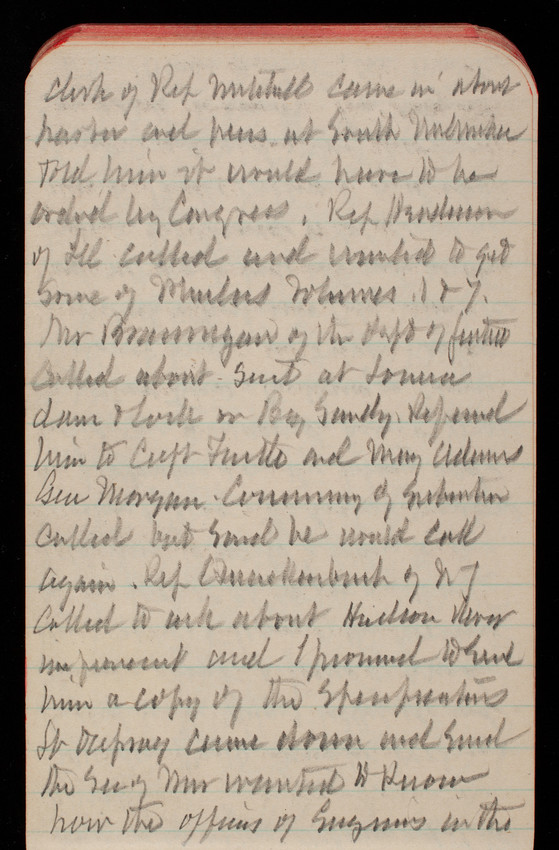 Clerk of Rep Mitchell came in about
harbor and piers at South Milwaukee
Told him it would have to be
ordrd by Congress. Rep Henderson
of Ill called and wanted to get
some of volumes 1 & 7.
Mr of the Dept of Justice
called about suit at Louisa
dam & lock on Big Sandy. Refered
him to Capt and Maj Adams
Gen Morgan. of
called but said he would call
again. Rep of NY
called to ask about Hudson River
improvement and I promised to send
him a copy of the Specifications
came down and said
the Sec of War wanted to know
how the officers of Engineers in the